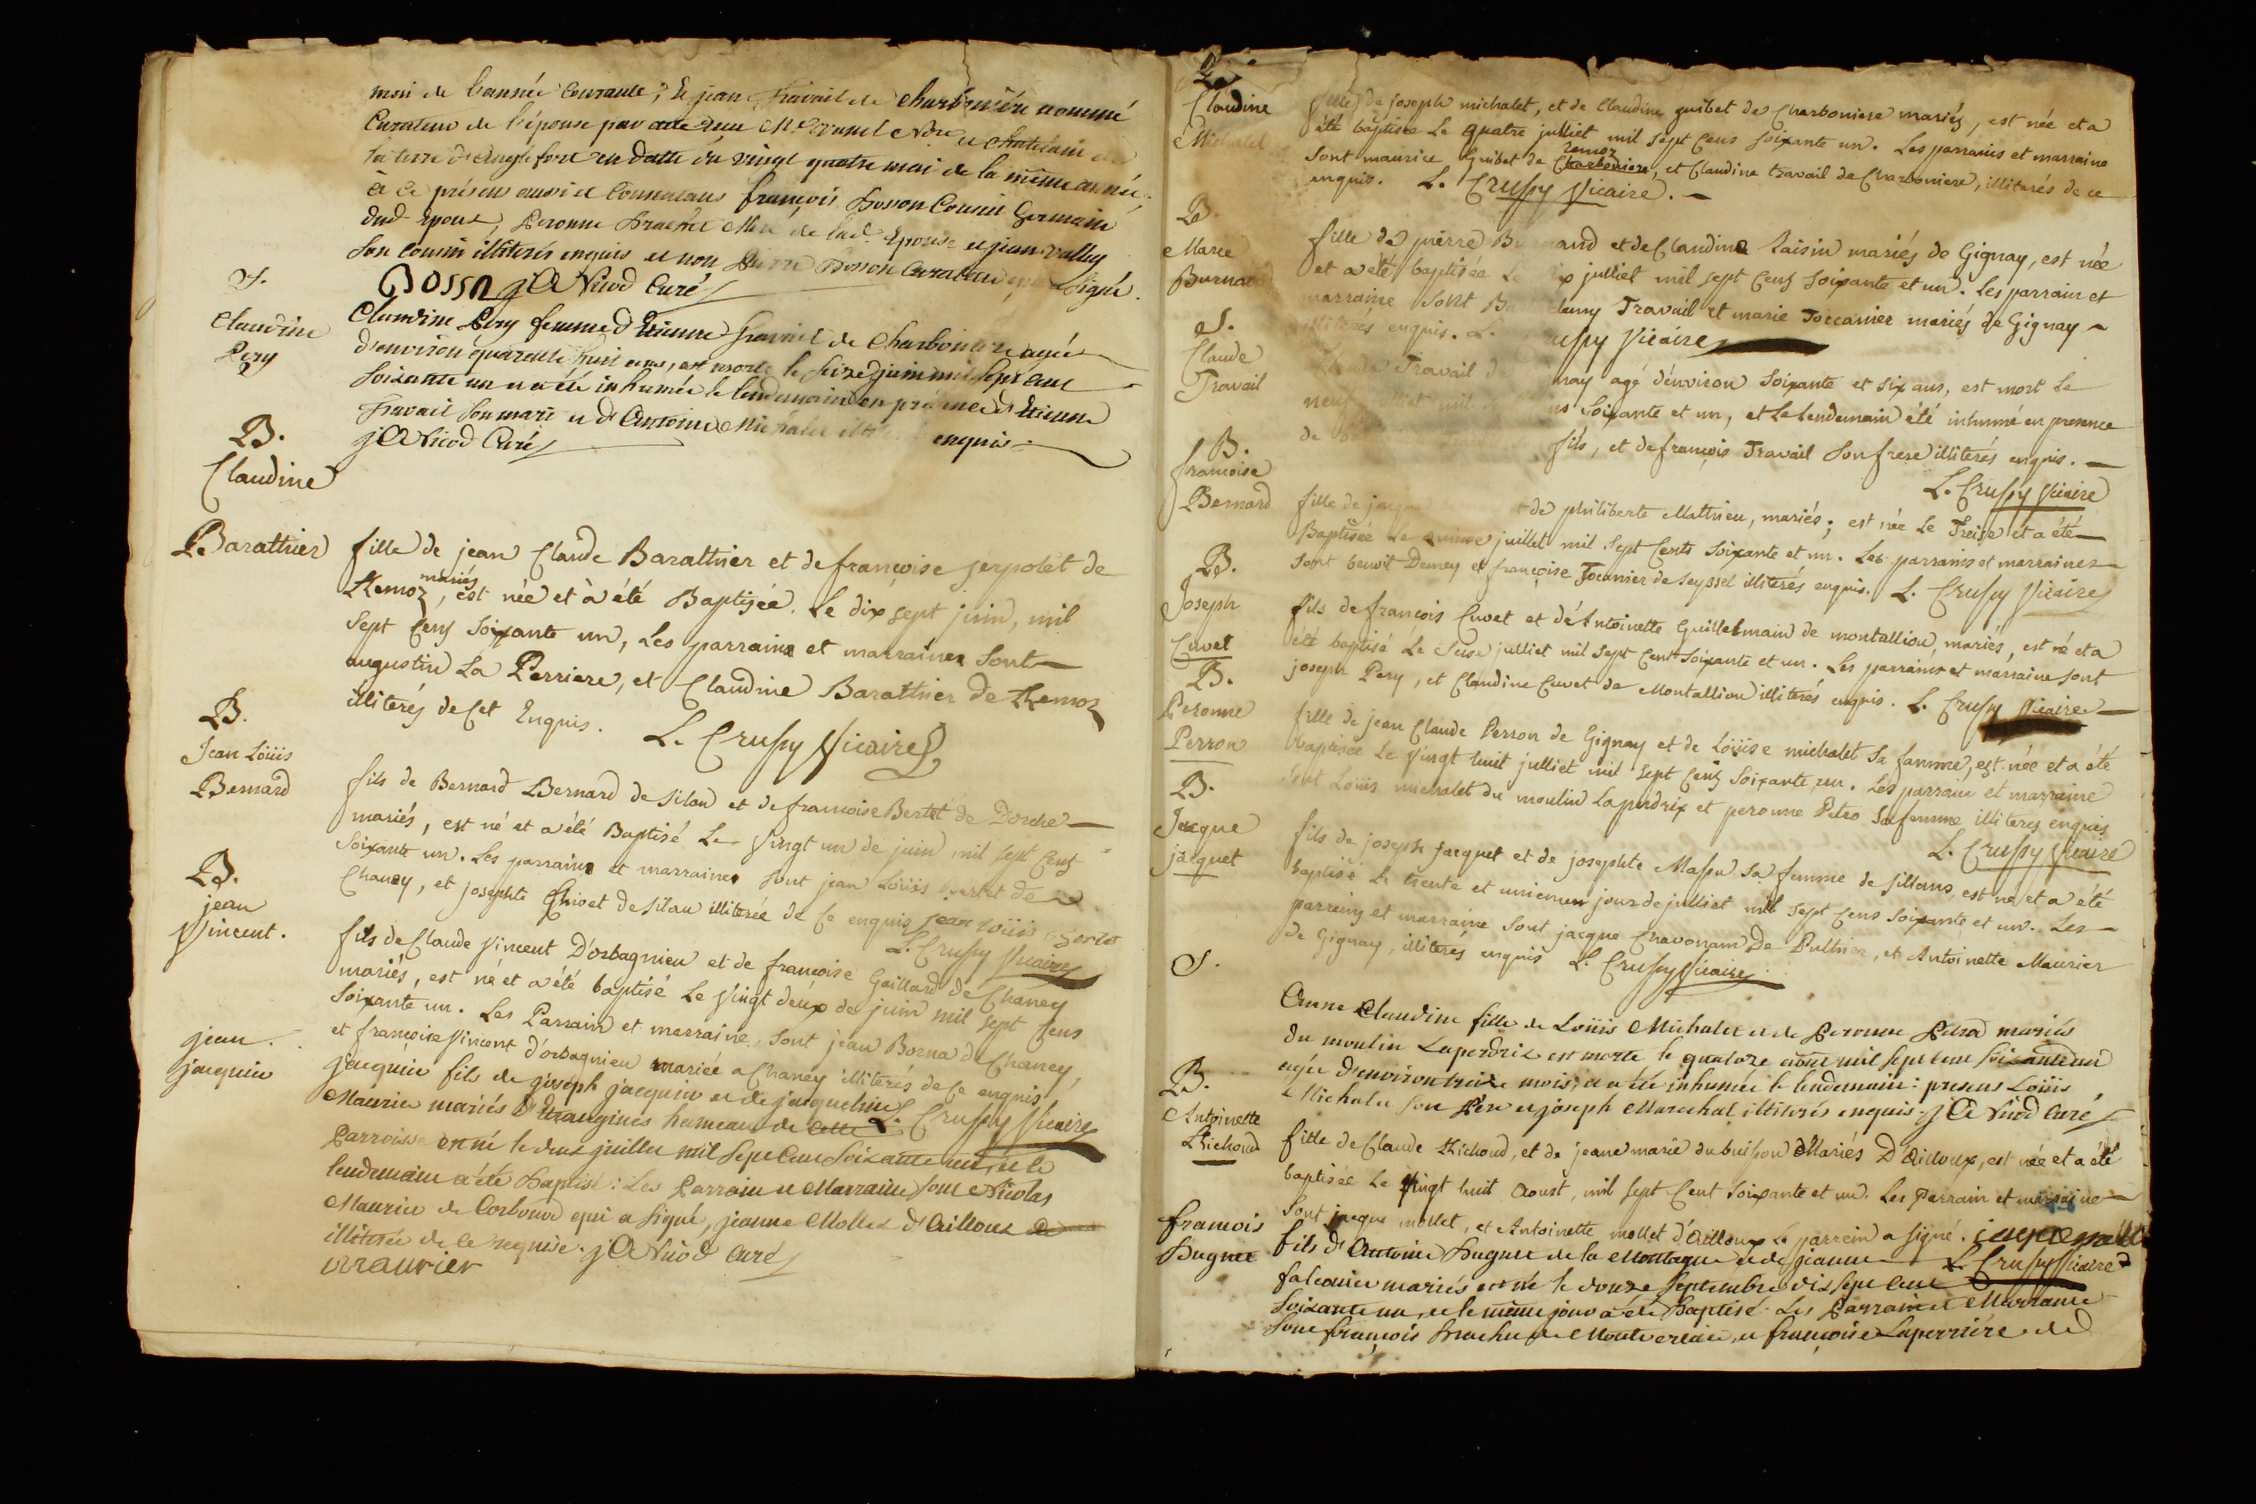 mai de l'année Courante; Et jean travail de charboniére nommé
Curateur de l'épouse par acte reçu Me Nore et chatelain de
la terre d'anglefort en datte du vingt quatre mai de la même année
à ce présens aussi et Consentans françois Bosson Cousin Germain
dud époux, Peronne Mere de lad. Epouse et jean vallet
son Cousin illiterés enquis et non Pierre Bosson Curateur qui a signé.
Bosson jA Nicod Curé
S.
Claudine
Pery
Claudine Pery femme d'Etienne travail de Charboniere agée
d'environ quarente huit ans, est morte le seize juin mil sept cent
soixante un et a été inhumée le lendemain en présence d'Etienne
travail son mari et d'Antoine Michalet enquis
jA Nicod Curé
B.
Claudine
Barathier
fille de jean Claude Barathier et de françoise jerpolet de
Remoz, mariés, est née et à été Baptisée. Le dix sept juin, mil
sept Cens soixante un, Les parrains et marraines sont
augustin La Perriere, et Claudine Barathier de Remoz
illiterés de Cet Enquis. L. Crussy Vicaire
B.
Jean Loüis
Bernard
fils de Bernard Bernard de silan et de francoise Bertet de Dorche
mariés, est né et a été Baptisé Le vingt un de juin mil sept Cens
soixante un. Les parrains et marraines sont jean Loüis Bertet de
Chaney, et josephte Ghivet de silan illiterée de ce enquis jean loüis Bertet
L. Crussy Vicaire
B.
jean
Vincent.
fils de Claude Vincent D'orbagnieu et de françoise Gaillard de Chaney
mariés, est né et a été baptisé Le vingt deux de juin mil sept Cens
soixante un. Les Parrain et marraine, sont jean Borna de Chaney,
et françoise Vincent d'orbagnieu mariée a Chaney illiterés de Ce enquis
L. Crussy Vicaire
jean
jacquin
jacquin fils de joseph jacquin et de jacqueline
Maurier mariés d'Etrangines hameau de cette
Parroisse est né le deux juillet mil sept Cent soixante un, et le
lendemain a été Baptisé: Les Parrain et Marraine sont Nicolas
Maurier de Corbonod qui a signé, jeanne Mollet d'Ailloux
illiterée de ce requise. jA Nicod Curé
maurier
B.
Claudine
Michalet
fille de joseph michalet, et de Claudine guibet de Charboniere mariés, est née et a
été baptisée Le quatre julliet mil sept Cens soixante un. Les parrains et marraine
sont maurice Guibet de Charboniere remoz, et Claudine travail de Charboniere, illiterés de ce
enquis. L. Crussy Vicaire.
B.
Marie
Burnand
fille de pierre Burnand et de Claudine Raisin mariés de Gignay, est née
et a été baptisée Le dix julliet mil sept Cens soixante et un. Les parrain et
marraine sont Travail et marie Toccanier mariés de Gignay
illiterés enquis. L. Crussy Vicaire
S.
Claude
Travail
Claude Travail de Gignay agé d'environ soixante et six ans, est mort Le
neuf julliet mil soixante et un, et Le lendemain été inhumé en presence
de fils, et de françois Travail son frere illiterés enquis.
L. Crussy Vicaire
B.
francoise
Bernard
fille de jacque de philiberte Mathieu, mariés; est née Le Treise et a été
Baptisée Le quinse juillet mil sept Cents soixante et un. Les parrains et marraines
sont benoit Demey et françoise Tocanier de seyssel illiterés enquis. L. Crussy Vicaire
B.
Joseph
Cuvet
fils de francois Cuvet et d'Antoinette Guillermain de montallion, mariés, est né et a
été baptisé Le Seise julliet mil sept Cent soixante et un. Les parrains et marraine sont
joseph Pery, et Claudine Cuvet de Montallion illiterés enquis. L. Crussy Vicaire
B.
Peronne
Perron
fille de jean Claude Perron de Gignay et de Loüise michalet sa famme, est née et a été
baptisée Le vingt huit julliet mil sept Cens soixante un. Les parrain et marraine
sont Loüis michalet du moulin Laperdrix et peronne Petro sa femme illiteres enquis
L. Crussy Vicaire
B.
Jacque
jacquet
fils de joseph jacquet et de josephte Massu sa femme de sillans, est né et a été
baptisé Le trente et uniemem jour de julliet mil sept Cens soixante et un. Les
parreins et marraine sont jacque Chavonam De Pulhier, et Antoinette Maurier
de Gignay, illiterés enquis L. Crussy Vicaire
S.
Anne Claudine fille de Loüis Michalet et de Peronne Petro mariés
du moulin Laperdrix est morte le quatorze aout mil sept cent soixante un
agée d'environ treize mois; et a été inhumée le lendemain: presens Loüis
Michalet son Pere et joseph Marechal illiterés enquis. jA Nicod Curé
B.
Antoinette
Richoud
fille de Claude Richoud, et de jeane marie dubuisson Mariés D'Ailloux, est née et a été
baptisée Le Vingt huit Aoust, mil sept Cent soixante et un. Les Parrain et marraine
sont jacque mollet, et Antoinette mollet d'Ailloux Le parrein a signé. jacque mollet
L. Crussy Vicaire
francois
Hugnet
fils d'Antoine Hugnet de la Montagne et de jeanne
falconier mariés est né le douze septembre dix sept cent
soixante un, et le même jour a été Baptisé. Les Parrain et Marraine
sont françois Machu de Montverain, et françoise Laperriére de